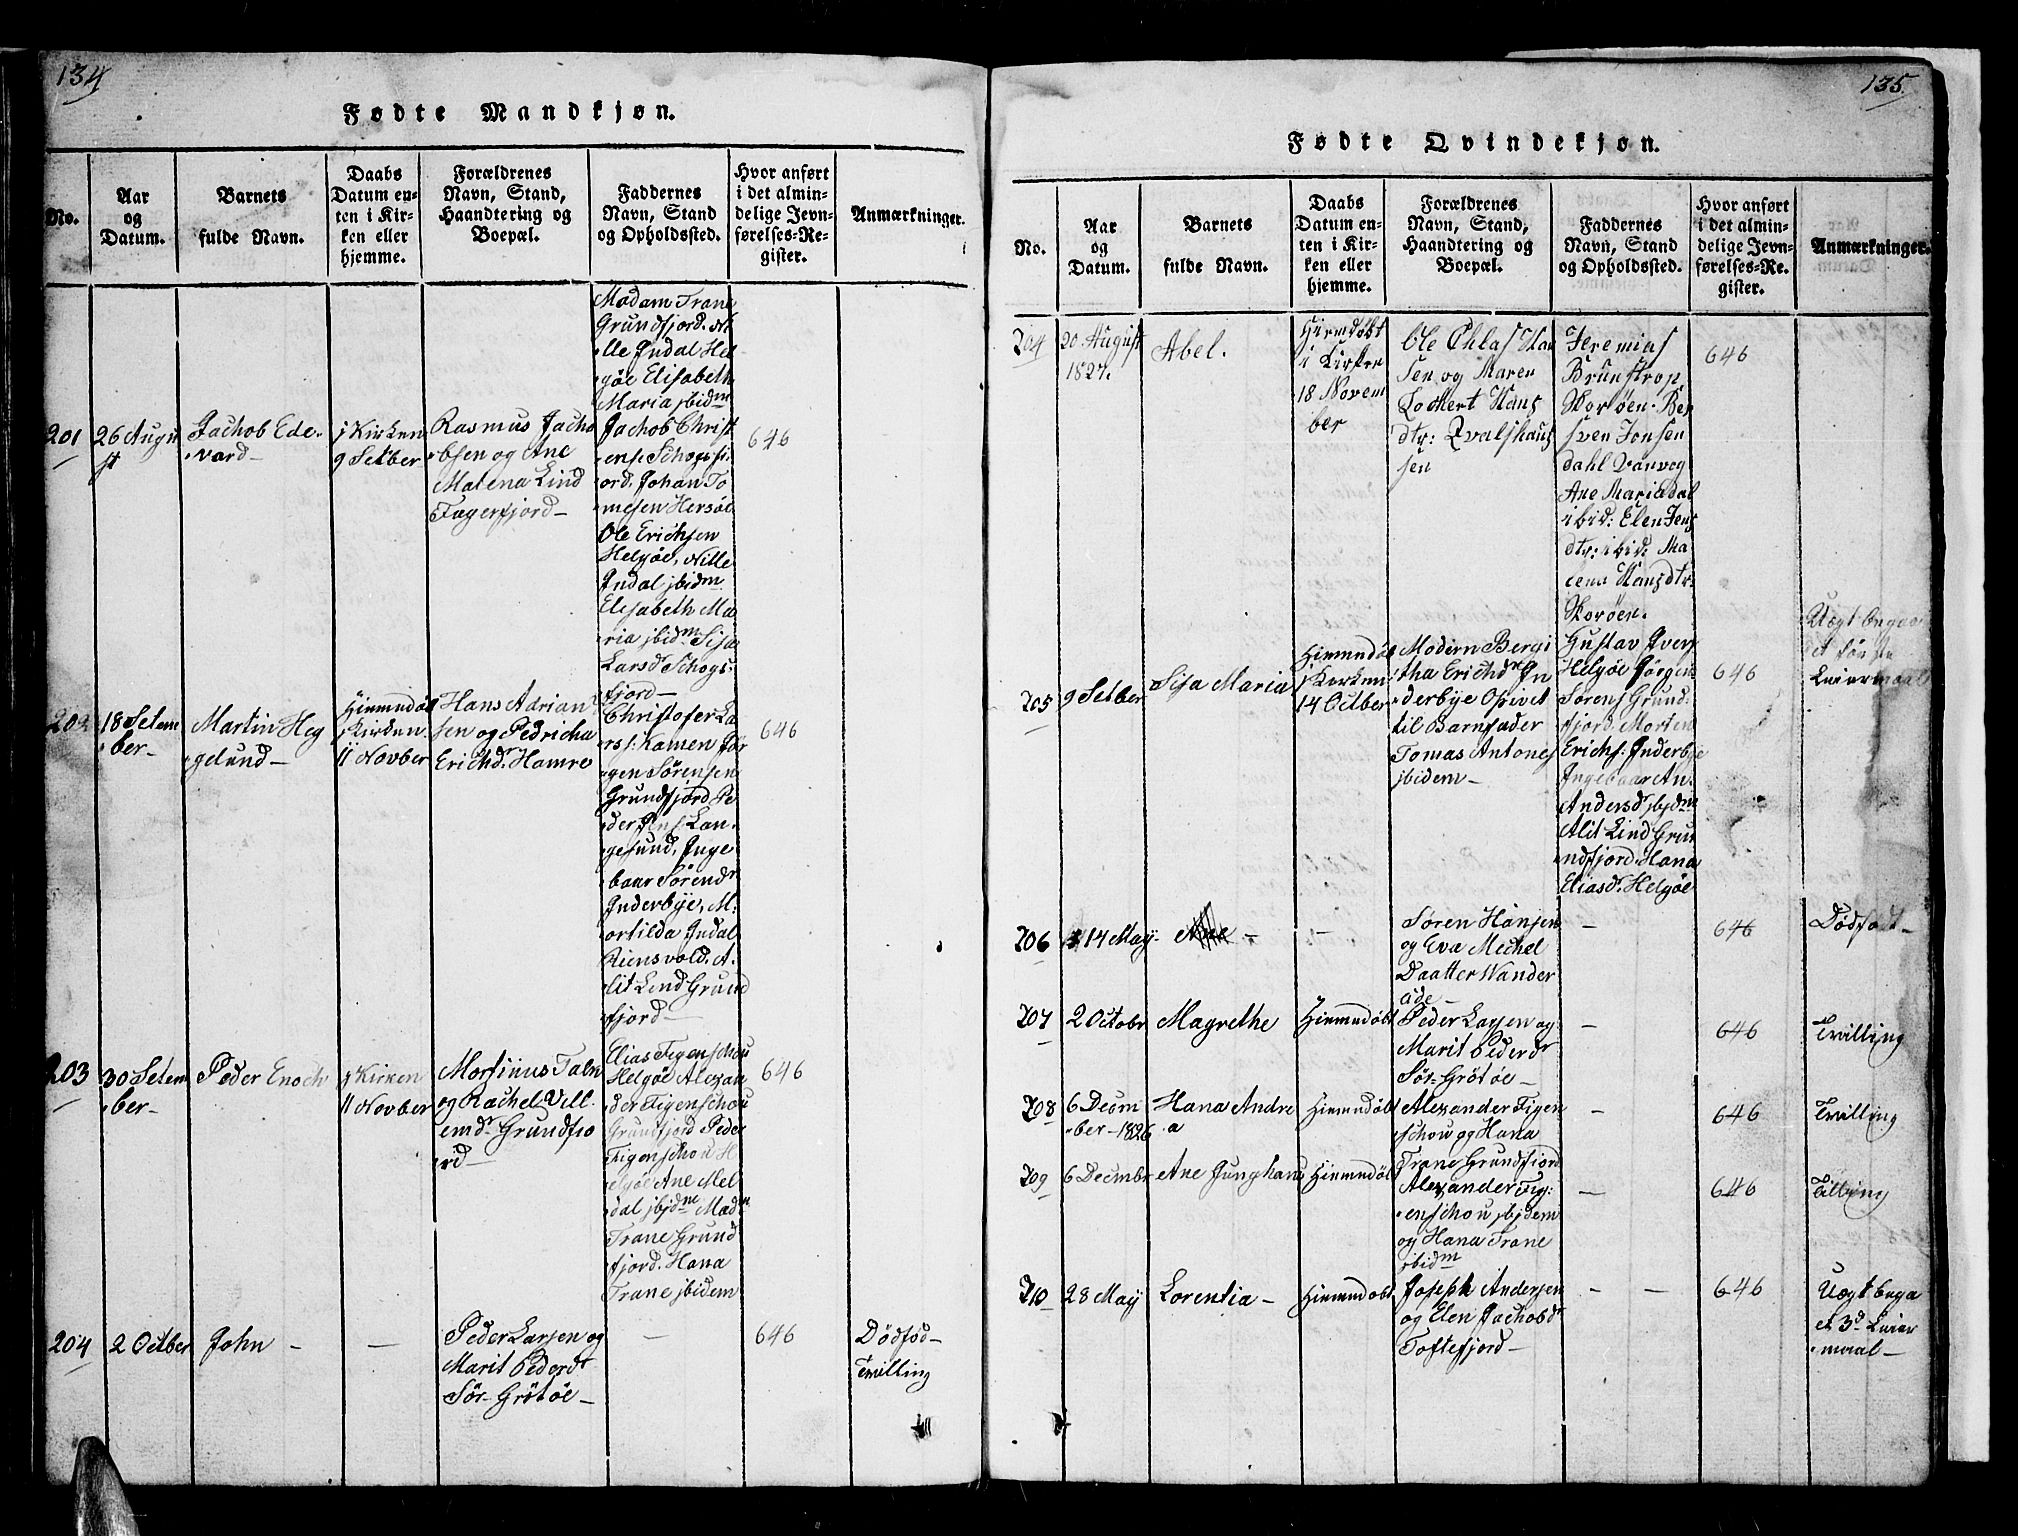 134
Fødte Mandkjøn.
No.
Aar
og
Datum.
Barnets
fulde Navn.
Daabs
Datum en-
ten i Kir-
ken eller
hjemme.
Forældrenes
Navn, Stand,
Haandtering og
Boepæl.
Faddernes
Navn, Stand
og Opholdssted.
Hvor anført
i det almin-
delige Jevn-
førelses-Re-
gister.
Anmærkninger.
201
26 Augu
st
Jachob Ede-
vard-
j Kirken
9 Setber
Rasmus Jacho
bsen og Ane
Malena Lind
Fagerfjord-
Madam Trane
Grundfjord. Ni
lle Jndal Hel
gøe Elisabeth
Maria jbidm
Jachob Christ
ens. Schogsfi
ord. Johan To
mesen Hersøe
Ole Erichsen
Helgøe, Nille
Jndal jbidm.
Elisabeth Ma
ria jbidm Sisa
Larsd Schogs-
fjord-
646
202
18 Setem
ber-
Martin Heg
gelund-
Hiemmdøb
j Kirken
11 Novber
Hans Adrian
sen og Pedricha
Erichdr Hamre
Christofer La
rs: Kamen Jør
gen Sørensen
Grundfjord Pe
der Jens: Lan-
gesund, Jnge
baar Sørendr
Jnderbye, M.
ortilda Jndal
Riensvold. A-
lit Lind Grund
fjord-
646
203
30 Setem
ber-
Peder Enoch
j Kirken
11 Novber
Mortinus Faln
og Rachel Vill-
emdr Grundfio
rd-
Elias Figenschou
Helgøe Alexan
der Figenschou
Grundfjord Peder
Figenschou H
elgøe Ane Mel
dal jbjdm Madm
Trane Grund
fjord. Hana
Trane jbidem
646
204
2 Octber
John -
-
Peder Larsen og
Marit Pederdr
Sör-Grötöe-
-
646
Dödföd-
Tvilling
135
Fødte Qvindekjøn.
No.
Aar
og
Datum.
Barnets
fulde Navn.
Daabs
Datum en-
ten i Kir-
ken eller
hjemme.
Forældrenes
Navn, Stand,
Haandtering og
Boepæl.
Faddernes
Navn, Stand
og Opholdssted.
Hvor anført
i det almin-
delige Jevn-
førelses-Re-
gister.
Anmærkninger.
204
20 August
1827.
Abel.
Hjemdøbt
i Kirken
18 Novem
ber
Ole Ohlas Han
sen og Maren
Lockert Hans
dtr: Qvalshaus
sen
Jeremias
Brunstrop
Skorøen. Ber
sven Jonsen
dahl Vanvog
Ane Maria dal
ibid: Elen Jens
dtr: ibid: Ma
lena Hansdtr.
Skorøen.
646
205
9 Setber
Sisa Maria
Hiemmdöb
j Kirken
14 Octber
Modern Bergi
tha Erichdr Jn
derbye Opivet
til Barnfader
Tomas Antones
jbidem-
Gustav Jvers
Helgøe Jørgen
Sørens Grund-
fjord. Morten
Erichs: Jnderbye
Jngebaar An.
Andersdr jbjdm
Alit Lind Gru
ndfjord. Hana
Eliasdr Helgøe
646
Uægt begaa
et første
Leiermaal
206
14 May
-
-
Søren Hansen
og Eva Mechel
Daatter Wander
eide-
-
646
Dödfödt-
207
2 Octobr
Magrethe
Hiemmdöbt
Peder Larsen og
Marit Pederdr
Sör-Grötöe-
-
646
Tvilling
208
6 Decem
ber-1826
Hana Andre
a
Hiemmdöbt
Alexander Figen
schou og Hana
Trane Grundfiord
-
646
Tvilling
209
6 Decmbr
Ane Junghans
Hiemmdöbt
Alexander Fig:
enschou jbjdem
og Hana Trane
jbidm
-
646
Tvilling
210
28 May
Lorentia -
Hiemmdöbt
Joseph Andersen
og Elen Jachobdr
Toftefjord-
-
-
646
Uægt bega
et 3d Leier
maal-